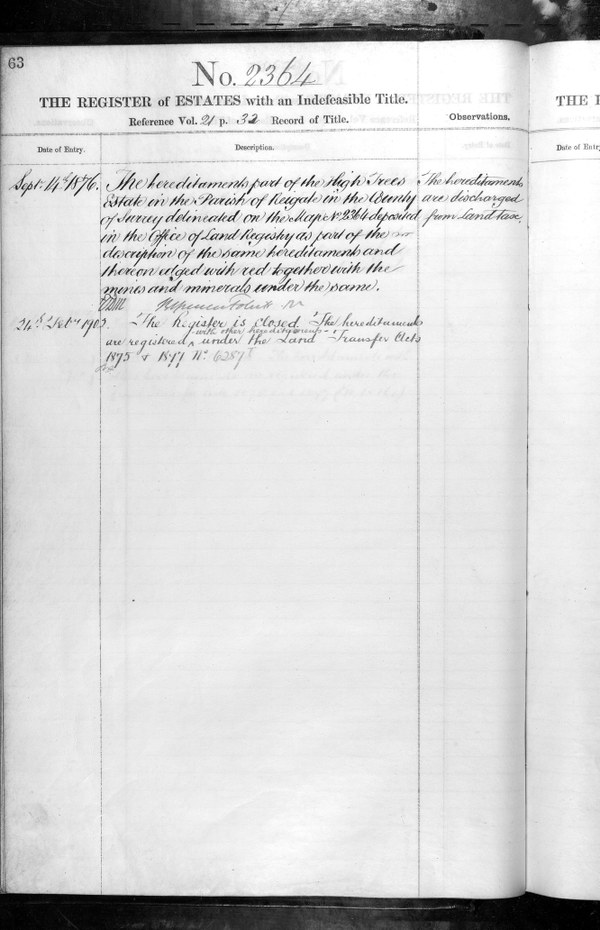 63
No. 2364
THE REGISTER of ESTATES with an Indefeasible Title.
Reference Vol. 21 p. 32 Record of Title.
Observations.
Date of Entry.
Description.
Sept. 14th 1876.
The hereditaments part of the High Trees
Estate in the Parish of Reigate in the County
of Surrey delineated on the Map No 2364 deposited
in the Office of Land Registry as part of the
description of the same hereditaments and
thereon edged with red together with the
mines and minerals under the same.
The hereditaments
are discharged
from Land Tax.
The Register is closed. The hereditaments
are registered with other hereditaments under the Land Transfer Acts
1875 & 1897 No
THE
Date of Entry